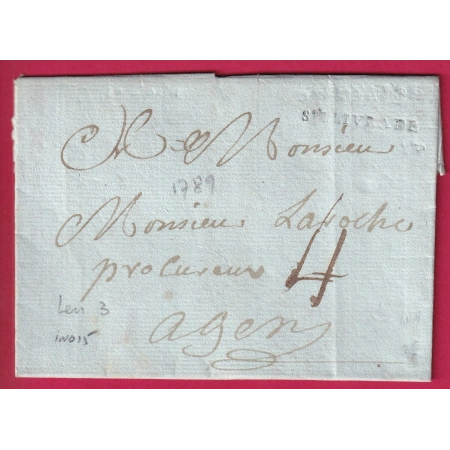 Ste LIVRADE
A Monsieur
1789
Monsieur Laroche
procureur 4
agen
Len 3
INDI5